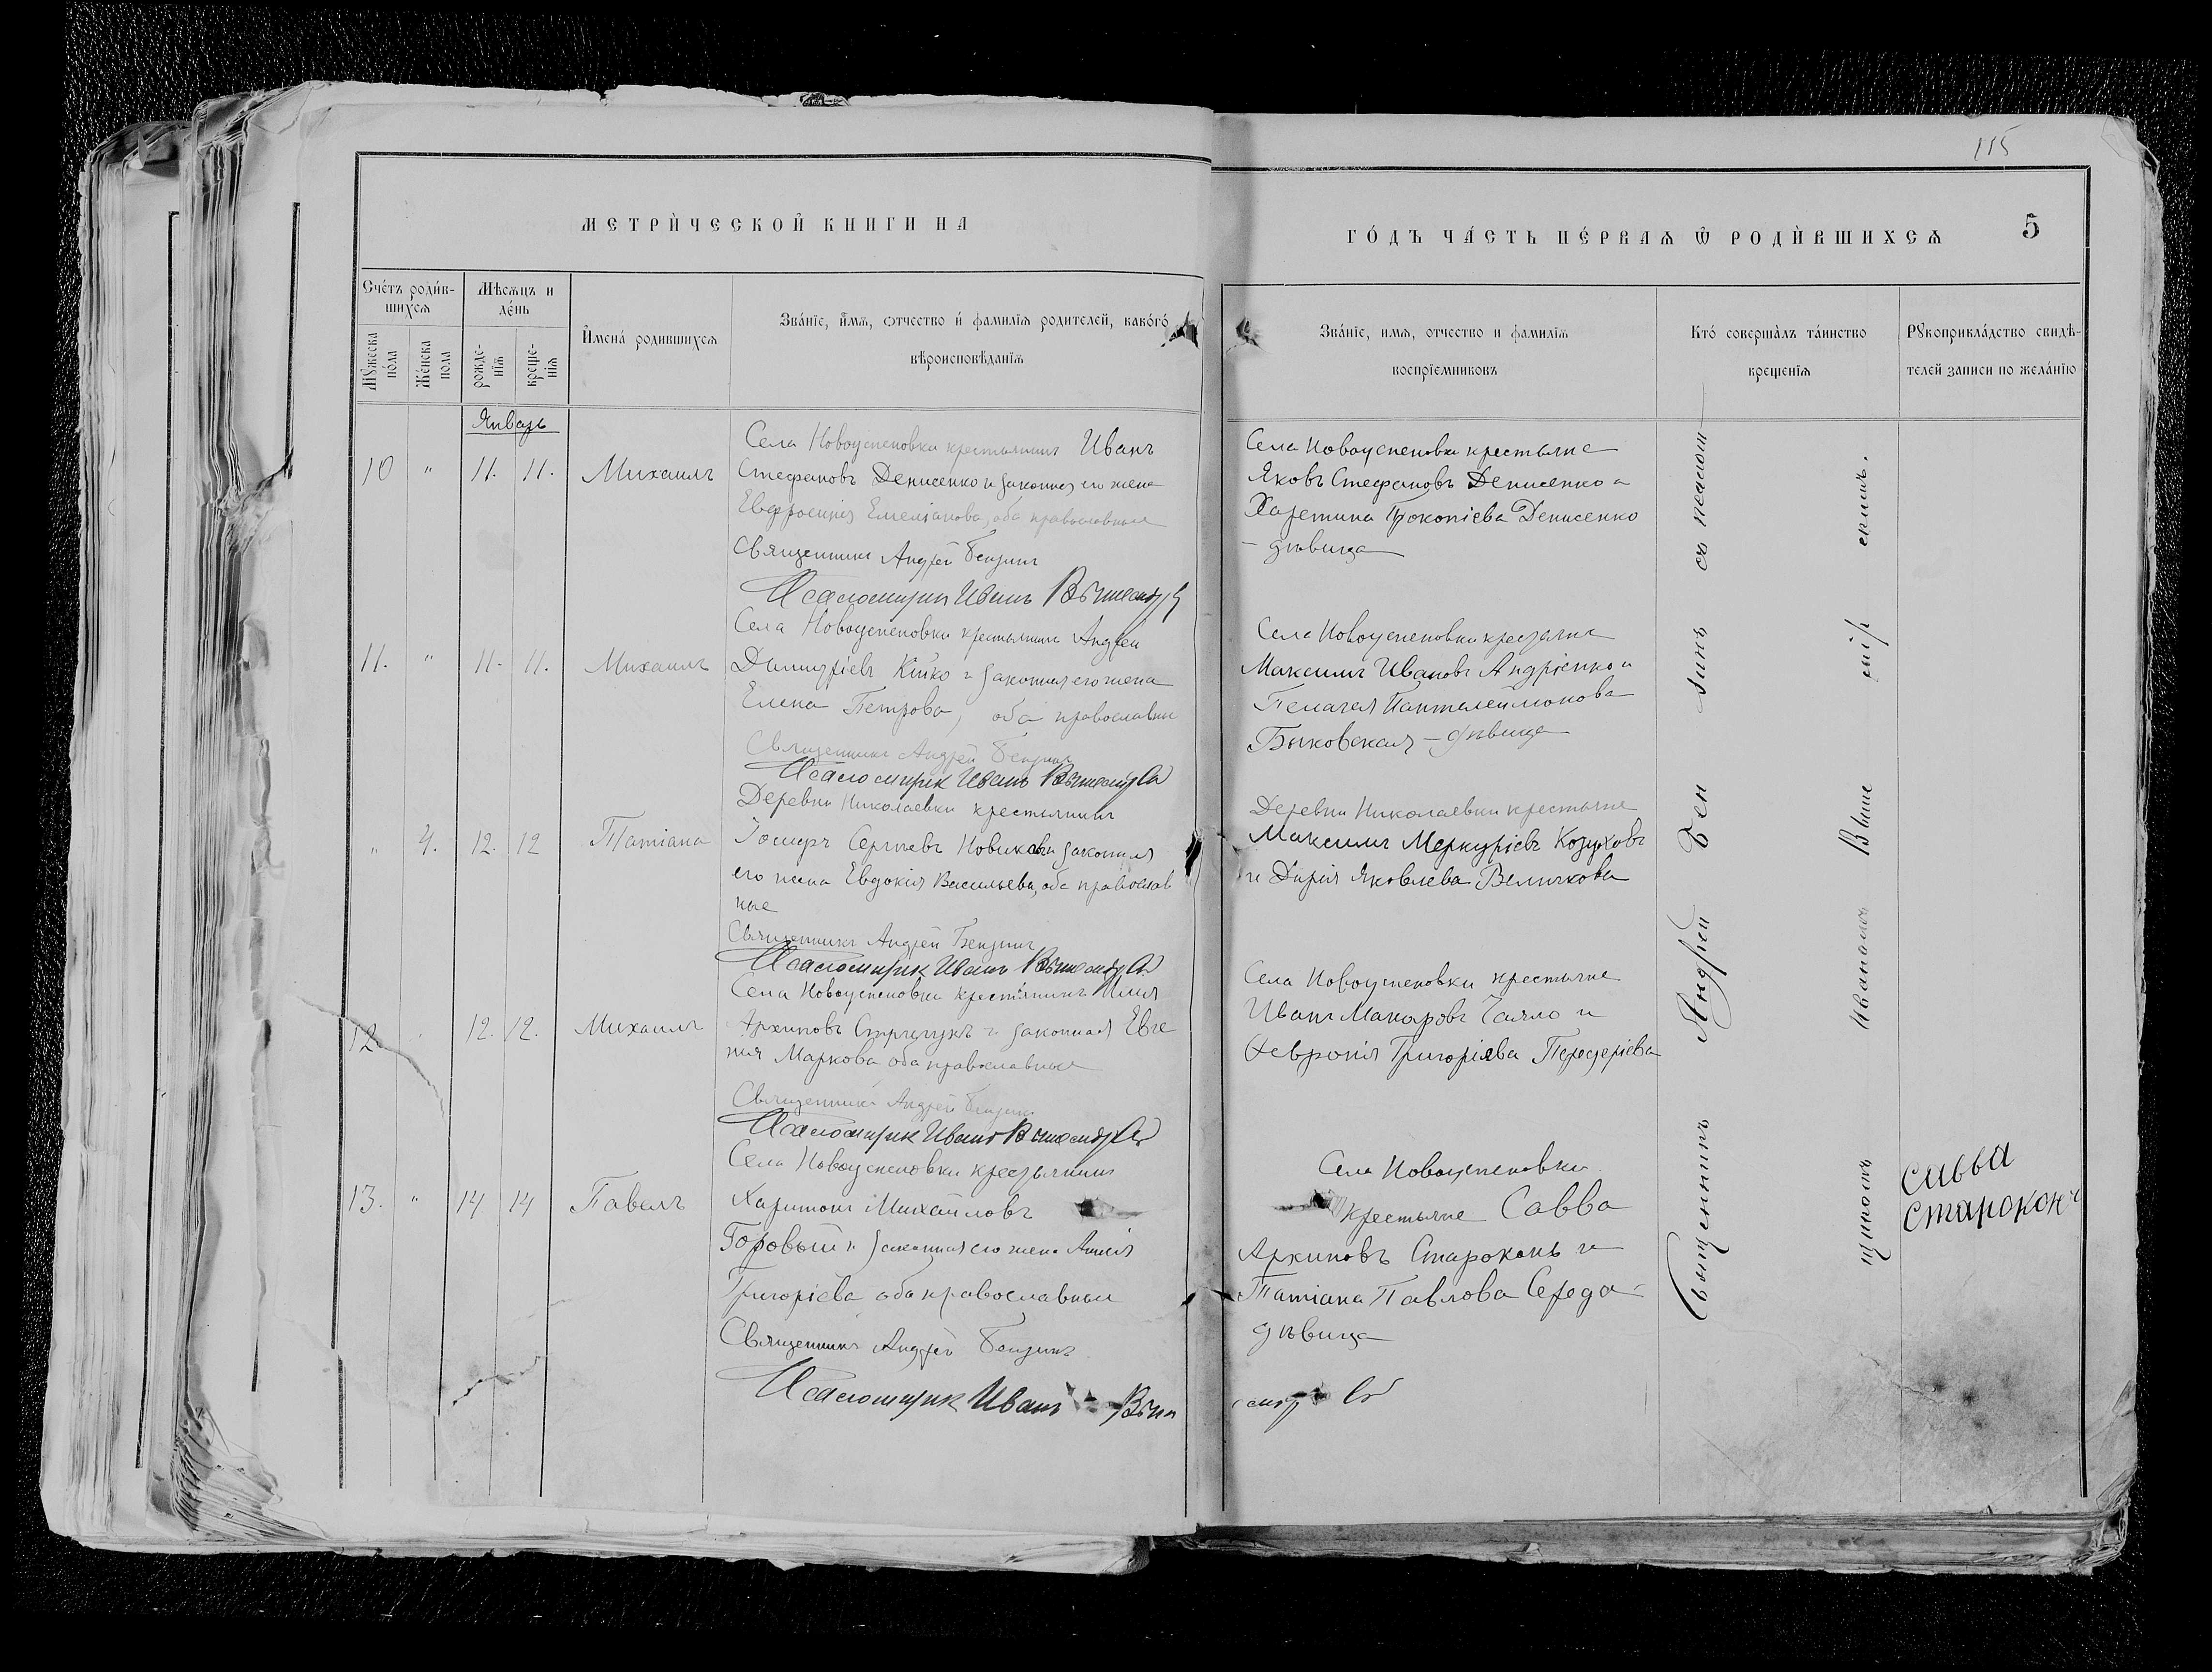 115
МЕТРИЧЕСКОЙ КНИГИ НА
ГОДЪ ЧАСТЬ ПЕРВАЯ Ѡ РОДИВШИХСЯ
5
Счетъ родив-
шихся
Мѣсяцъ и
день
Имена родившихся
Званіе, имя, отчество и фамилія родителей, какого
вѣроисповѣданія
Мужеска
пола
Женска
пола
рожде-
нія
креще-
нія
Званіе, имя, отчество и фамилія
воспріемниковъ
Кто совершалъ таинство
крещенія
Рукоприкладство свидѣ-
телей записи по желанію
Январь
10 " 11. 11. Михаилъ
Села Новоуспеновки крестьянинъ Иванъ
Стефановъ Денисенко и законная его жена
Евфросинія Емеліанова, оба православные
Священникъ Андрей
Псаломщикъ Иванъ
Села Новоуспеновки крестьяне
Яковъ Стефановъ Денисенко и
Харетина Прокопіева Денисенко
- дѣвица
11. " 11. 11. Михаилъ
Села Новоуспеновки крестьянинъ Андрей
Димитріевъ Кійко и законная его жена
Елена Петрова, оба православные
Священникъ Андрей
Псаломщикъ Иванъ
Села Новоуспеновки крестьяне
Максимъ Ивановъ Андріенко и
Пелагея Пантелеймонова
Быковская - дѣвица
" 4. 12. 12 Татіана
Деревни Николаевки крестьянинъ
Іосифъ Сергѣевъ Новиковъ и законная
его жена Евдокія Васильева, оба православ
ные
Священникъ Андрей
Псаломщикъ Иванъ
Деревни Николаевки крестьяне
Максимъ Меркуріевъ Козуховъ
и Дарія Яковлева Величкова
12 12. 12. Михаилъ
Села Новоуспеновки крестянинъ Илія
Архиповъ и законная Евге
нія Маркова оба православные
Священникъ Андрей
Псаломщикъ Иванъ
Села Новоуспеновки крестьяне
Иванъ Макаровъ Чаяло и
Февронія Григоріева Передеріева
13. " 14 14 Павелъ
Села Новоуспеновки крестьянинъ
Харитонъ Михайловъ
Горовый и законная его жена
Григоріева оба православные
Священникъ Андрей
Псаломщикъ Иванъ
Села Новоуспеновки
крестьяне Савва
Архиповъ Староконь и
Татіана Павлова Середа -
дѣвица
Священникъ Андрей съ псалом
щикомъ Иваномъ
Савва
Староконь